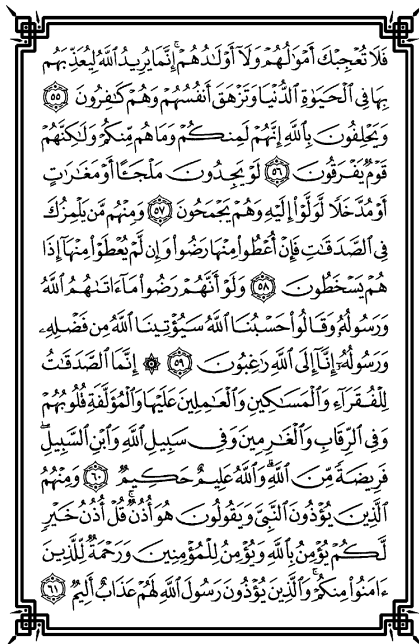 فَلَا تُعْجِبْكَ أَمْوَٰلُهُمْ وَلَآ أَوْلَٰدُهُمْ ۚ إِنَّمَا يُرِيدُ ٱللَّهُ لِيُعَذِّبَهُم
بِهَا فِى ٱلْحَيَوٰةِ ٱلدُّنْيَا وَتَزْهَقَ أَنفُسُهُمْ وَهُمْ كَٰفِرُونَ ٥٥
وَيَحْلِفُونَ بِٱللَّهِ إِنَّهُمْ لَمِنكُمْ وَمَا هُم مِّنكُمْ وَلَٰكِنَّهُمْ
قَوْمٌ يَفْرَقُونَ ٥٦ لَوْ يَجِدُونَ مَلْجَـًٔا أَوْ مَغَٰرَٰتٍ
أَوْ مُدَّخَلًا لَّوَلَّوْا۟ إِلَيْهِ وَهُمْ يَجْمَحُونَ ٥٧ وَمِنْهُم مَّن يَلْمِزُكَ
فِى ٱلصَّدَقَٰتِ فَإِنْ أُعْطُوا۟ مِنْهَا رَضُوا۟ وَإِن لَّمْ يُعْطَوْا۟ مِنْهَآ إِذَا
هُمْ يَسْخَطُونَ ٥٨ وَلَوْ أَنَّهُمْ رَضُوا۟ مَآ ءَاتَىٰهُمُ ٱللَّهُ
وَرَسُولُهُۥ وَقَالُوا۟ حَسْبُنَا ٱللَّهُ سَيُؤْتِينَا ٱللَّهُ مِن فَضْلِهِۦ
وَرَسُولُهُۥٓ إِنَّآ إِلَى ٱللَّهِ رَٰغِبُونَ ٥٩ ۞ إِنَّمَا ٱلصَّدَقَٰتُ
لِلْفُقَرَآءِ وَٱلْمَسَٰكِينِ وَٱلْعَٰمِلِينَ عَلَيْهَا وَٱلْمُؤَلَّفَةِ قُلُوبُهُمْ
وَفِى ٱلرِّقَابِ وَٱلْغَٰرِمِينَ وَفِى سَبِيلِ ٱللَّهِ وَٱبْنِ ٱلسَّبِيلِ ۖ
فَرِيضَةً مِّنَ ٱللَّهِ ۗ وَٱللَّهُ عَلِيمٌ حَكِيمٌ ٦٠ وَمِنْهُمُ
ٱلَّذِينَ يُؤْذُونَ ٱلنَّبِىَّ وَيَقُولُونَ هُوَ أُذُنٌ ۚ قُلْ أُذُنُ خَيْرٍ
لَّكُمْ يُؤْمِنُ بِٱللَّهِ وَيُؤْمِنُ لِلْمُؤْمِنِينَ وَرَحْمَةٌ لِّلَّذِينَ
ءَامَنُوا۟ مِنكُمْ ۚ وَٱلَّذِينَ يُؤْذُونَ رَسُولَ ٱللَّهِ لَهُمْ عَذَابٌ أَلِيمٌ ٦١